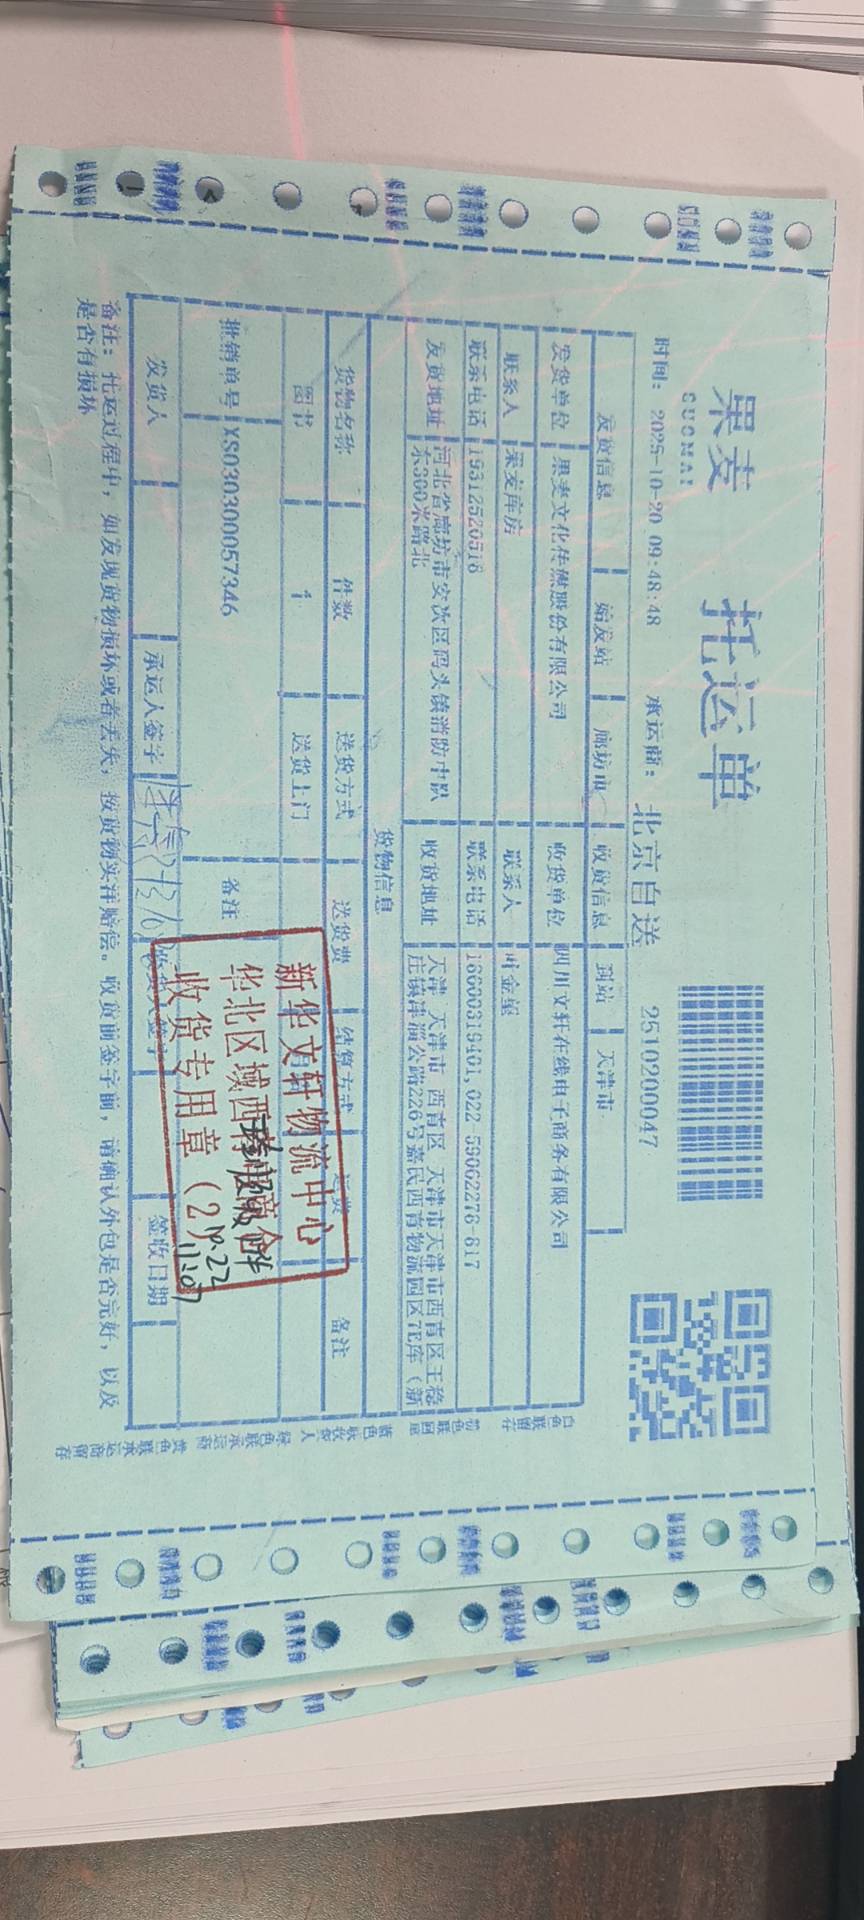 果麦
GUOMAI
托运单
时间： 2025-10-20 09:48:48 承运商： 北京自送 2510200047
发货信息 始发站 廊坊市 收货信息 到站 天津市
发货单位 果麦文化传媒股份有限公司 收货单位 四川文轩在线电子商务有限公司
联系人 果麦库房 联系人 叶金星
联系电话 19312520518 联系电话 18600319401,022-59062276-817
发货地址 河北省廊坊市安次区码头镇消防中队东300米路北 收货地址 天津 天津市 西青区 天津市天津市西青区王稳庄镇津淄公路226号嘉民西青物流园区7E库（新
货物信息
货物名称 件数 送货方式 送货费 结算方式 运费 备注
图书 4 送货上门
批销单号 XS030300057346 备注
发货人 承运人签字 收货人签字 签收日期
备注： 托运过程中，如发现货物损坏或者丢失，按货物实洋赔偿。收货前签字前，请确认外包是否完好，以及
是否有损坏
新华文轩物流中心
华北区域西
收货专用章（2）
10.22
11:07
白色联留存
粉色联回单
蓝色联收货人
绿色联承运商
黄色联承运商留存